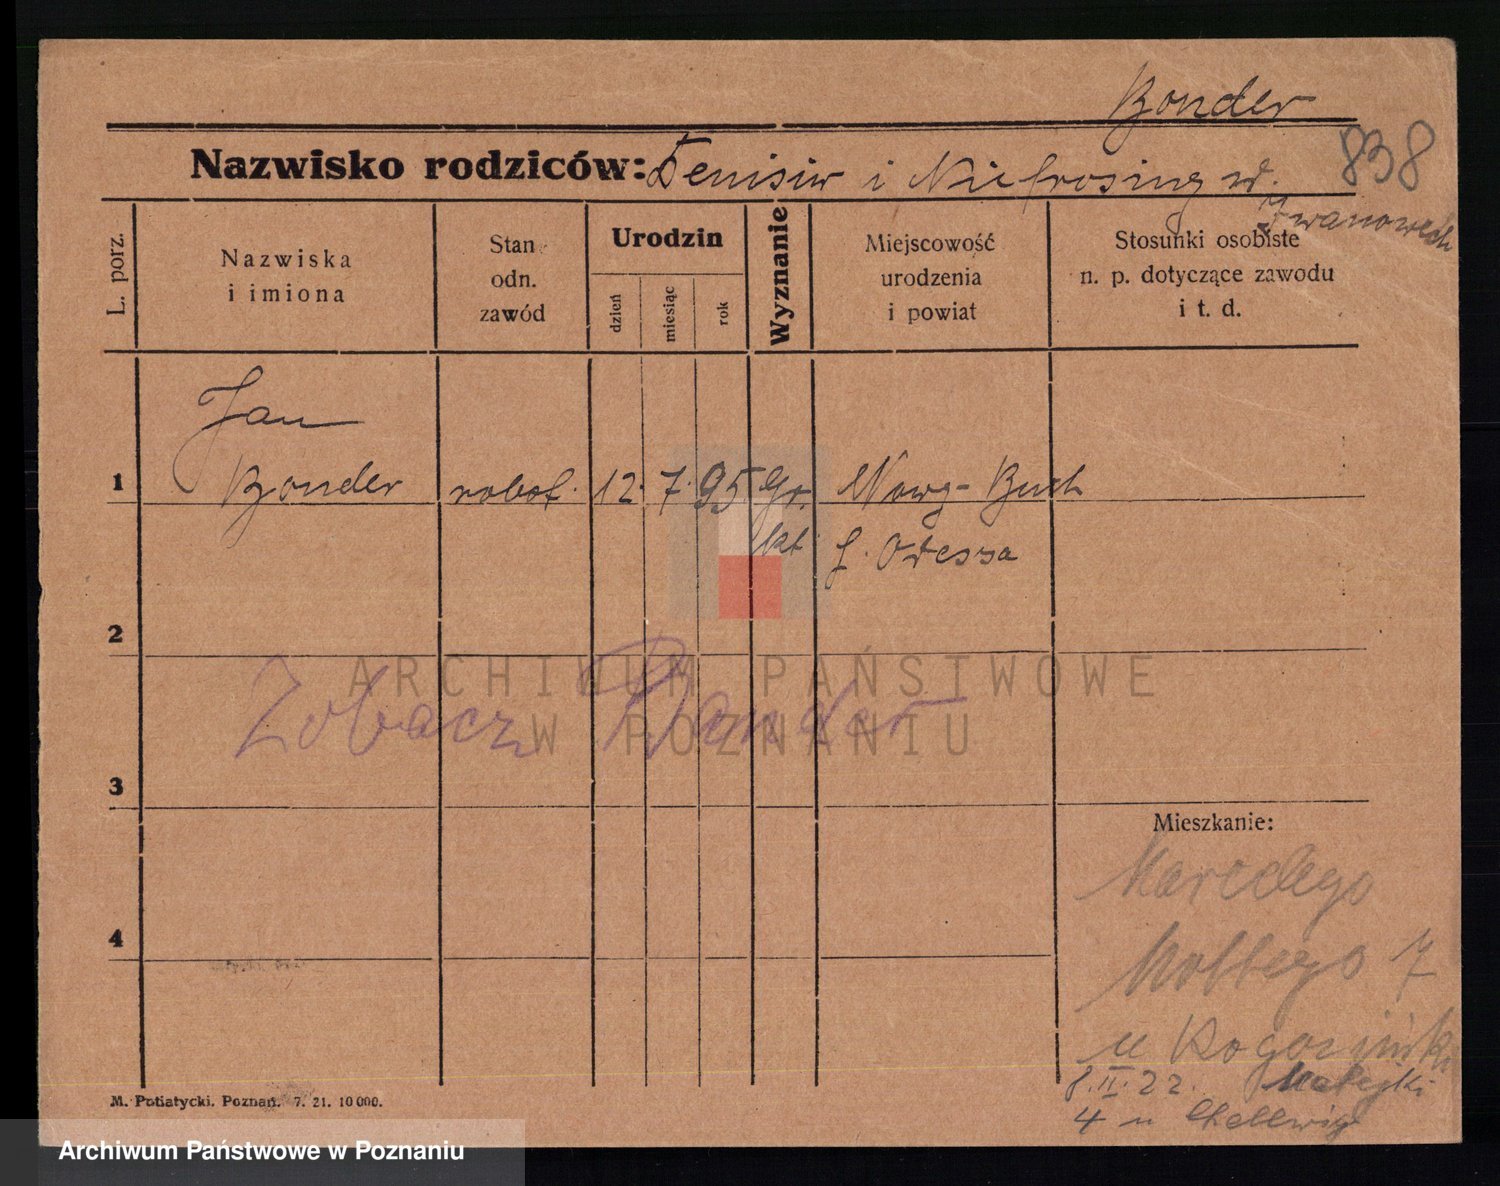 Bonder
838
Nazwisko rodziców: Denisiw i Niefrosina d.
Iwanowech
L. porz.
Nazwiska
i imiona
Stan
odn.
zawód
Urodzin
dzień
miesiąc
rok
Wyznanie
Miejscowość
urodzenia
i powiat
Stosunki osobiste
n. p. dotyczące zawodu
i t. d.
Jan
1 Bonder robot. 12. 7. 95 Gr. Nowy-Buch
kt f. Odessa
2
ARCHIWUM PAŃSTWOWE
W POZNANIU
Zobacz Bondar
3
Mieszkanie:
4
7
8.II.22. Matejki
4 u Chellwig
M. Putiatycki. Poznań. 7. 21. 10 000.
Archiwum Państwowe w Poznaniu